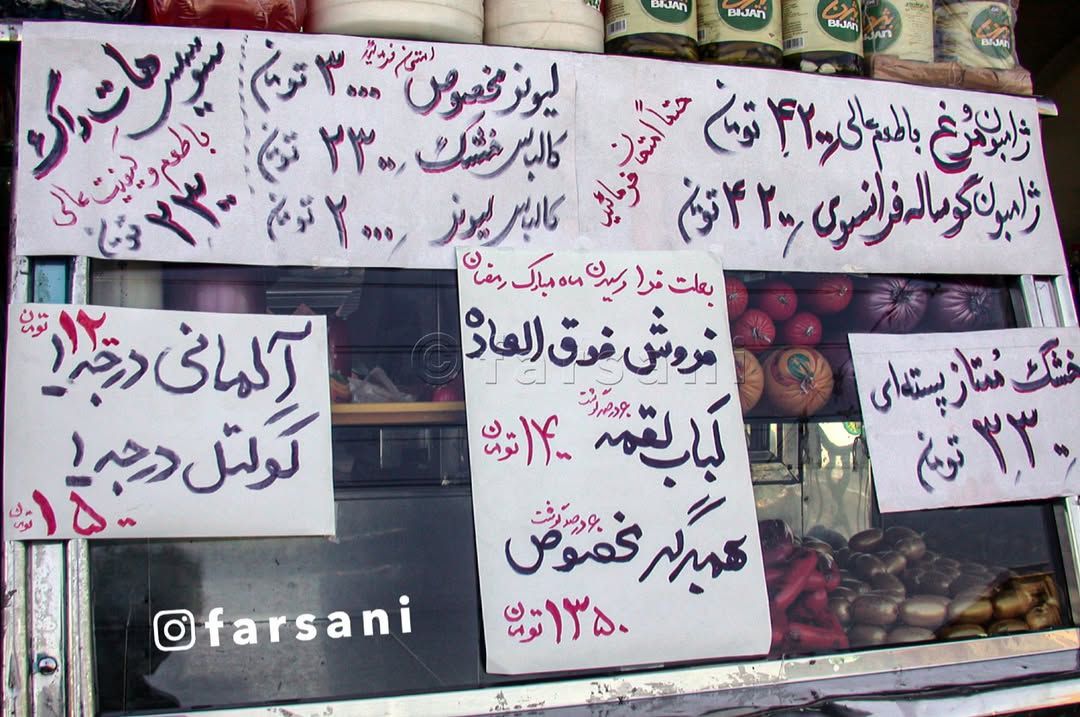 BIJAN
BIJAN
BIJAN
BIJAN
ژامبون مرغ با طعم عالی ۴۲۰۰ تومان
ژامبون گوساله فرانسوی ۴۲۰۰ تومان
حتماً امتحان فرمائید
لیونز مخصوص ۳۰۰۰ تومان
امتحان فرمائید
کالباس خشک ۲۳۰۰ تومان
کالباس لیونز ۲۰۰۰ تومان
سوسیس هات داگ
با طعم و کیفیت عالی
۲۳۰۰ تومان
بعلت فرا رسیدن ماه مبارک رمضان
فروش فوق العاده
۶۰ درصد گوشت
کباب لقمه ۱۴۰۰ تومان
۶۰ درصد گوشت
همبرگر مخصوص
۱۳۵۰ تومان
خشک ممتاز پسته‌ای
۳۳۰۰ تومان
آلمانی درجه ۱ ۱۲۰۰ تومان
کوکتل درجه ۱
۱۵۰۰ تومان
© farsani
farsani